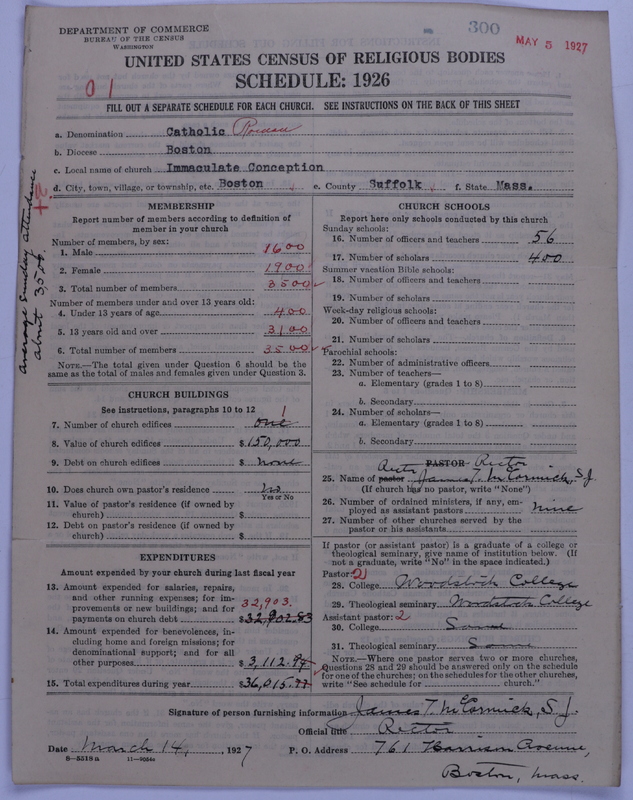 DEPARTMENT OF COMMERCE
BUREAU OF THE CENSUS
WASHINGTON
300
MAY 5 1927
UNITED STATES CENSUS OF RELIGIOUS BODIES
SCHEDULE: 1926
01
FILL OUT A SEPARATE SCHEDULE FOR EACH CHURCH. SEE INSTRUCTIONS ON THE BACK OF THIS SHEET
a. Denomination Catholic Roman
b. Diocese Boston
c. Local name of church Immaculate Conception
d. City, town, village, or township, etc. Boston e. County Suffolk f. State Mass.
Average Sunday attendance
about 3,500.
MEMBERSHIP
Report number of members according to definition of
member in your church
Number of members, by sex:
1. Male 1600
2. Female 1900
3. Total number of members 3500
Number of members under and over 13 years old:
4. Under 13 years of age 400
5. 13 years old and over 3100
6. Total number of members 3500
NOTE.—The total given under Question 6 should be
same as the total of males and females given under Question 3.
CHURCH BUILDINGS
See instructions, paragraphs 10 to 12
1
7. Number of church edifices one
8. Value of church edifices $150,000
9. Debt on church edifices $ none
10. Does church own pastor's residence no
Yes or No
11. Value of pastor's residence (if owned by
church) $
12. Debt on pastor's residence (if owned by
church) $
EXPENDITURES
Amount expended by your church during last fiscal year
13. Amount expended for salaries, repairs,
and other running expenses; for im-
provements or new buildings; and for
32,903.
payments on church debt $32,902.83
14. Amount expended for benevolences, in-
cluding home and foreign missions; for
denominational support; and for all
other purposes $3,112.94
15. Total expenditures during year $36,015.77
CHURCH SCHOOLS
Report here only schools conducted by this church
Sunday schools:
16. Number of officers and teachers 56
17. Number of scholars 400
Summer vacation Bible schools:
18. Number of officers and teachers
19. Number of scholars
Week-day religious schools:
20. Number of officers and teachers
21. Number of scholars
Parochial schools:
22. Number of administrative officers
23. Number of teachers—
a. Elementary (grades 1 to 8)
b. Secondary
24. Number of scholars—
a. Elementary (grades 1 to 8)
b. Secondary
PASTOR Rector
25. Name of pastor James T. McCormick, S.J.
(If church has no pastor, write "None")
26. Number of ordained ministers, if any, em-
ployed as assistant pastors nine
27. Number of other churches served by the
pastor or his assistants
If pastor (or assistant pastor) is a graduate of a college or
theological seminary, give name of institution below. (If
not a graduate, write "No" in the space indicated.)
Pastor: 2
28. College Woodstock College
29. Theological seminary Woodstock College
Assistant pastor: 2
30. College Same
31. Theological seminary Same
NOTE.—Where one pastor serves two or more churches,
Questions 28 and 29 should be answered only on the schedule
for one of the churches; on the schedules for the other churches,
write "See schedule for church."
Signature of person furnishing information James T. McCormick, S.J.
Official title Rector
Date March 14, 1927 P. O. Address 761 Harrison Avenue,
8—5318a 11—9054a
Boston, Mass.